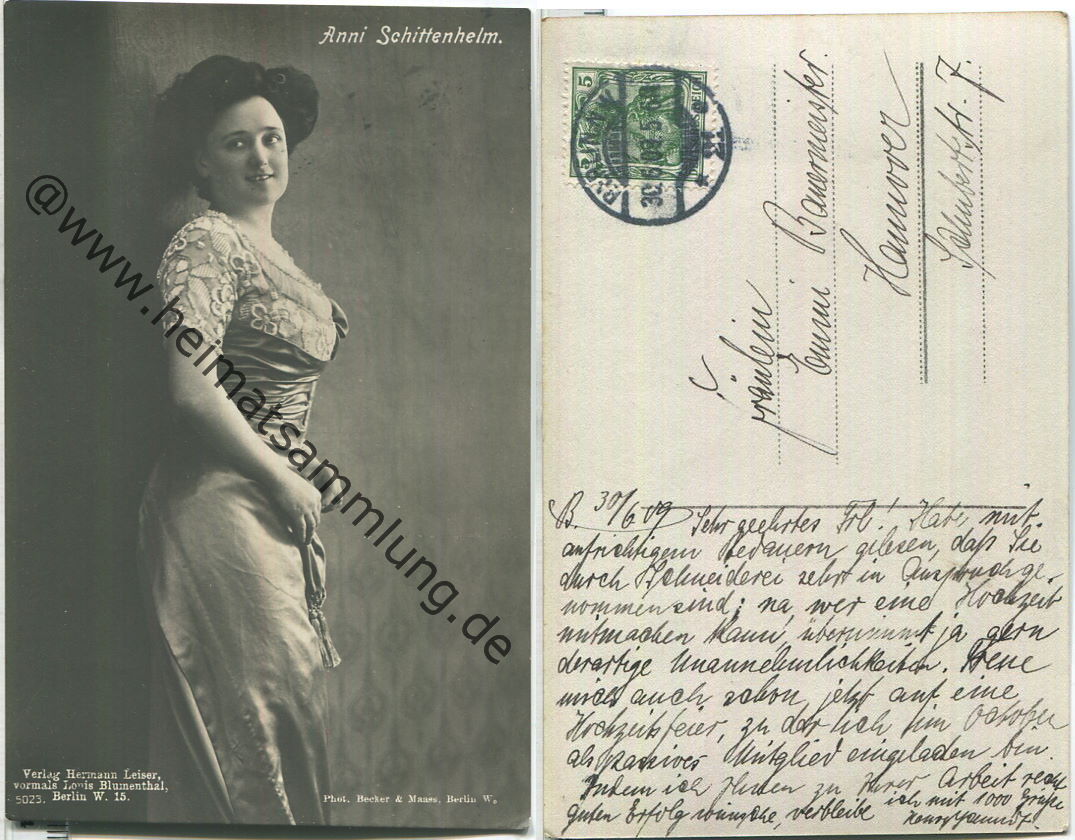 Anni Schittenhelm.
@www.heimatsammlung.de
Verlag Hermann Leiser,
vormals Louis Blumenthal,
5023. Berlin W. 15.
Phot. Becker & Maass, Berlin W.
5
BREMEN
30.6.09
13
Fräulein
Emmi Bauermeister
Hannover
7.
B. 30/6 09 Sehr geehrtes Frl! Habe mit
aufrichtigem Bedauern gelesen, daß Sie
durch Schneiderei sehr in Anspruch ge-
nommen sind; na, wer eine Hochzeit
mitmachen kann, übernimmt ja gern
derartige Unannehmlichkeiten. Freue
mich auch schon jetzt auf eine
Hochzeitsfeier, zu der ich im October
als passives Mitglied eingeladen bin
Indem ich Ihnen zu Ihrer Arbeit recht
guten Erfolg wünsche, verbleibe ich mit 1000 Grüße